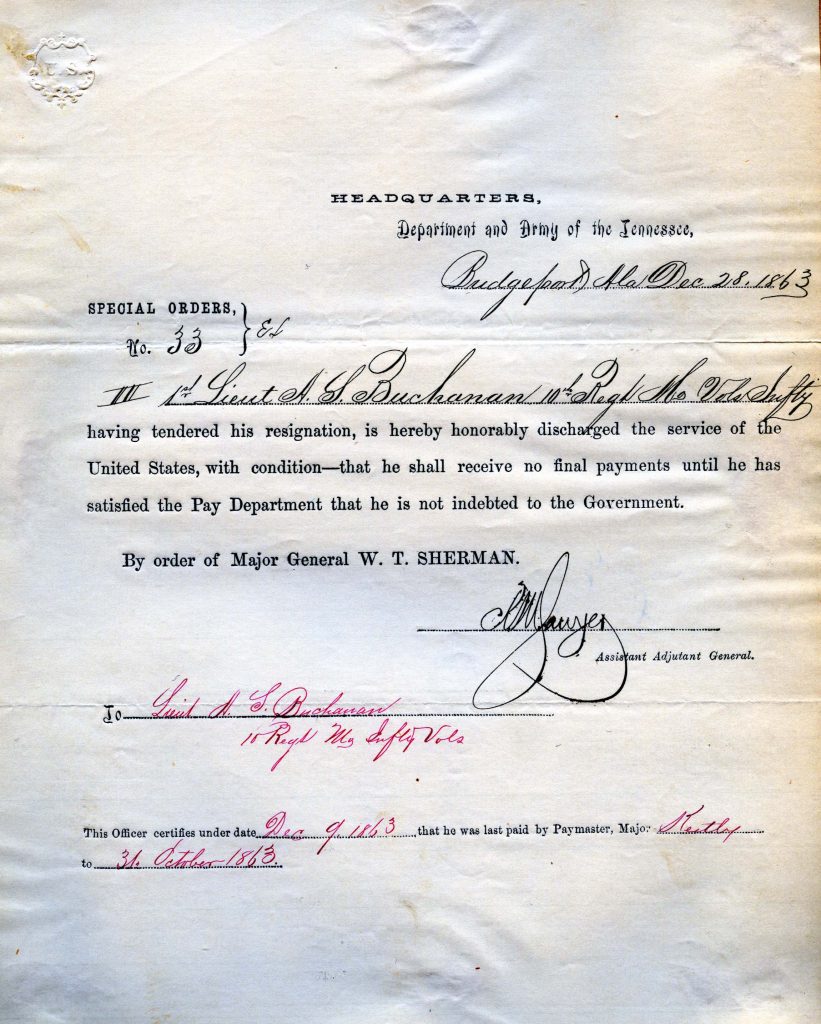 U.S.
HEADQUARTERS,
Department and Army of the Tennessee,
Bridgeport Ala Dec. 28. 1863
SPECIAL ORDERS, }
No. 33 } Ex
III 1st Lieut A. S. Buchanan 10th Regt Mo Vols Infty
having tendered his resignation, is hereby honorably discharged the service of the
United States, with condition—that he shall receive no final payments until he has
satisfied the Pay Department that he is not indebted to the Government.
By order of Major General W. T. SHERMAN.
Sawyer
Assistant Adjutant General.
To Lieut A S. Buchanan
10 Regt Mo Infty Vols
This Officer certifies under date Dec 9. 1863 that he was last paid by Paymaster, Major
to 31. October 1863.